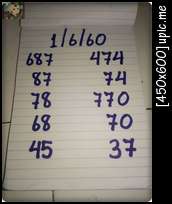 1/6/60
687 474
87 74
78 770
68 70
45 37
[450x600] upic.me